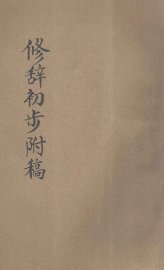 修辞初步附稿